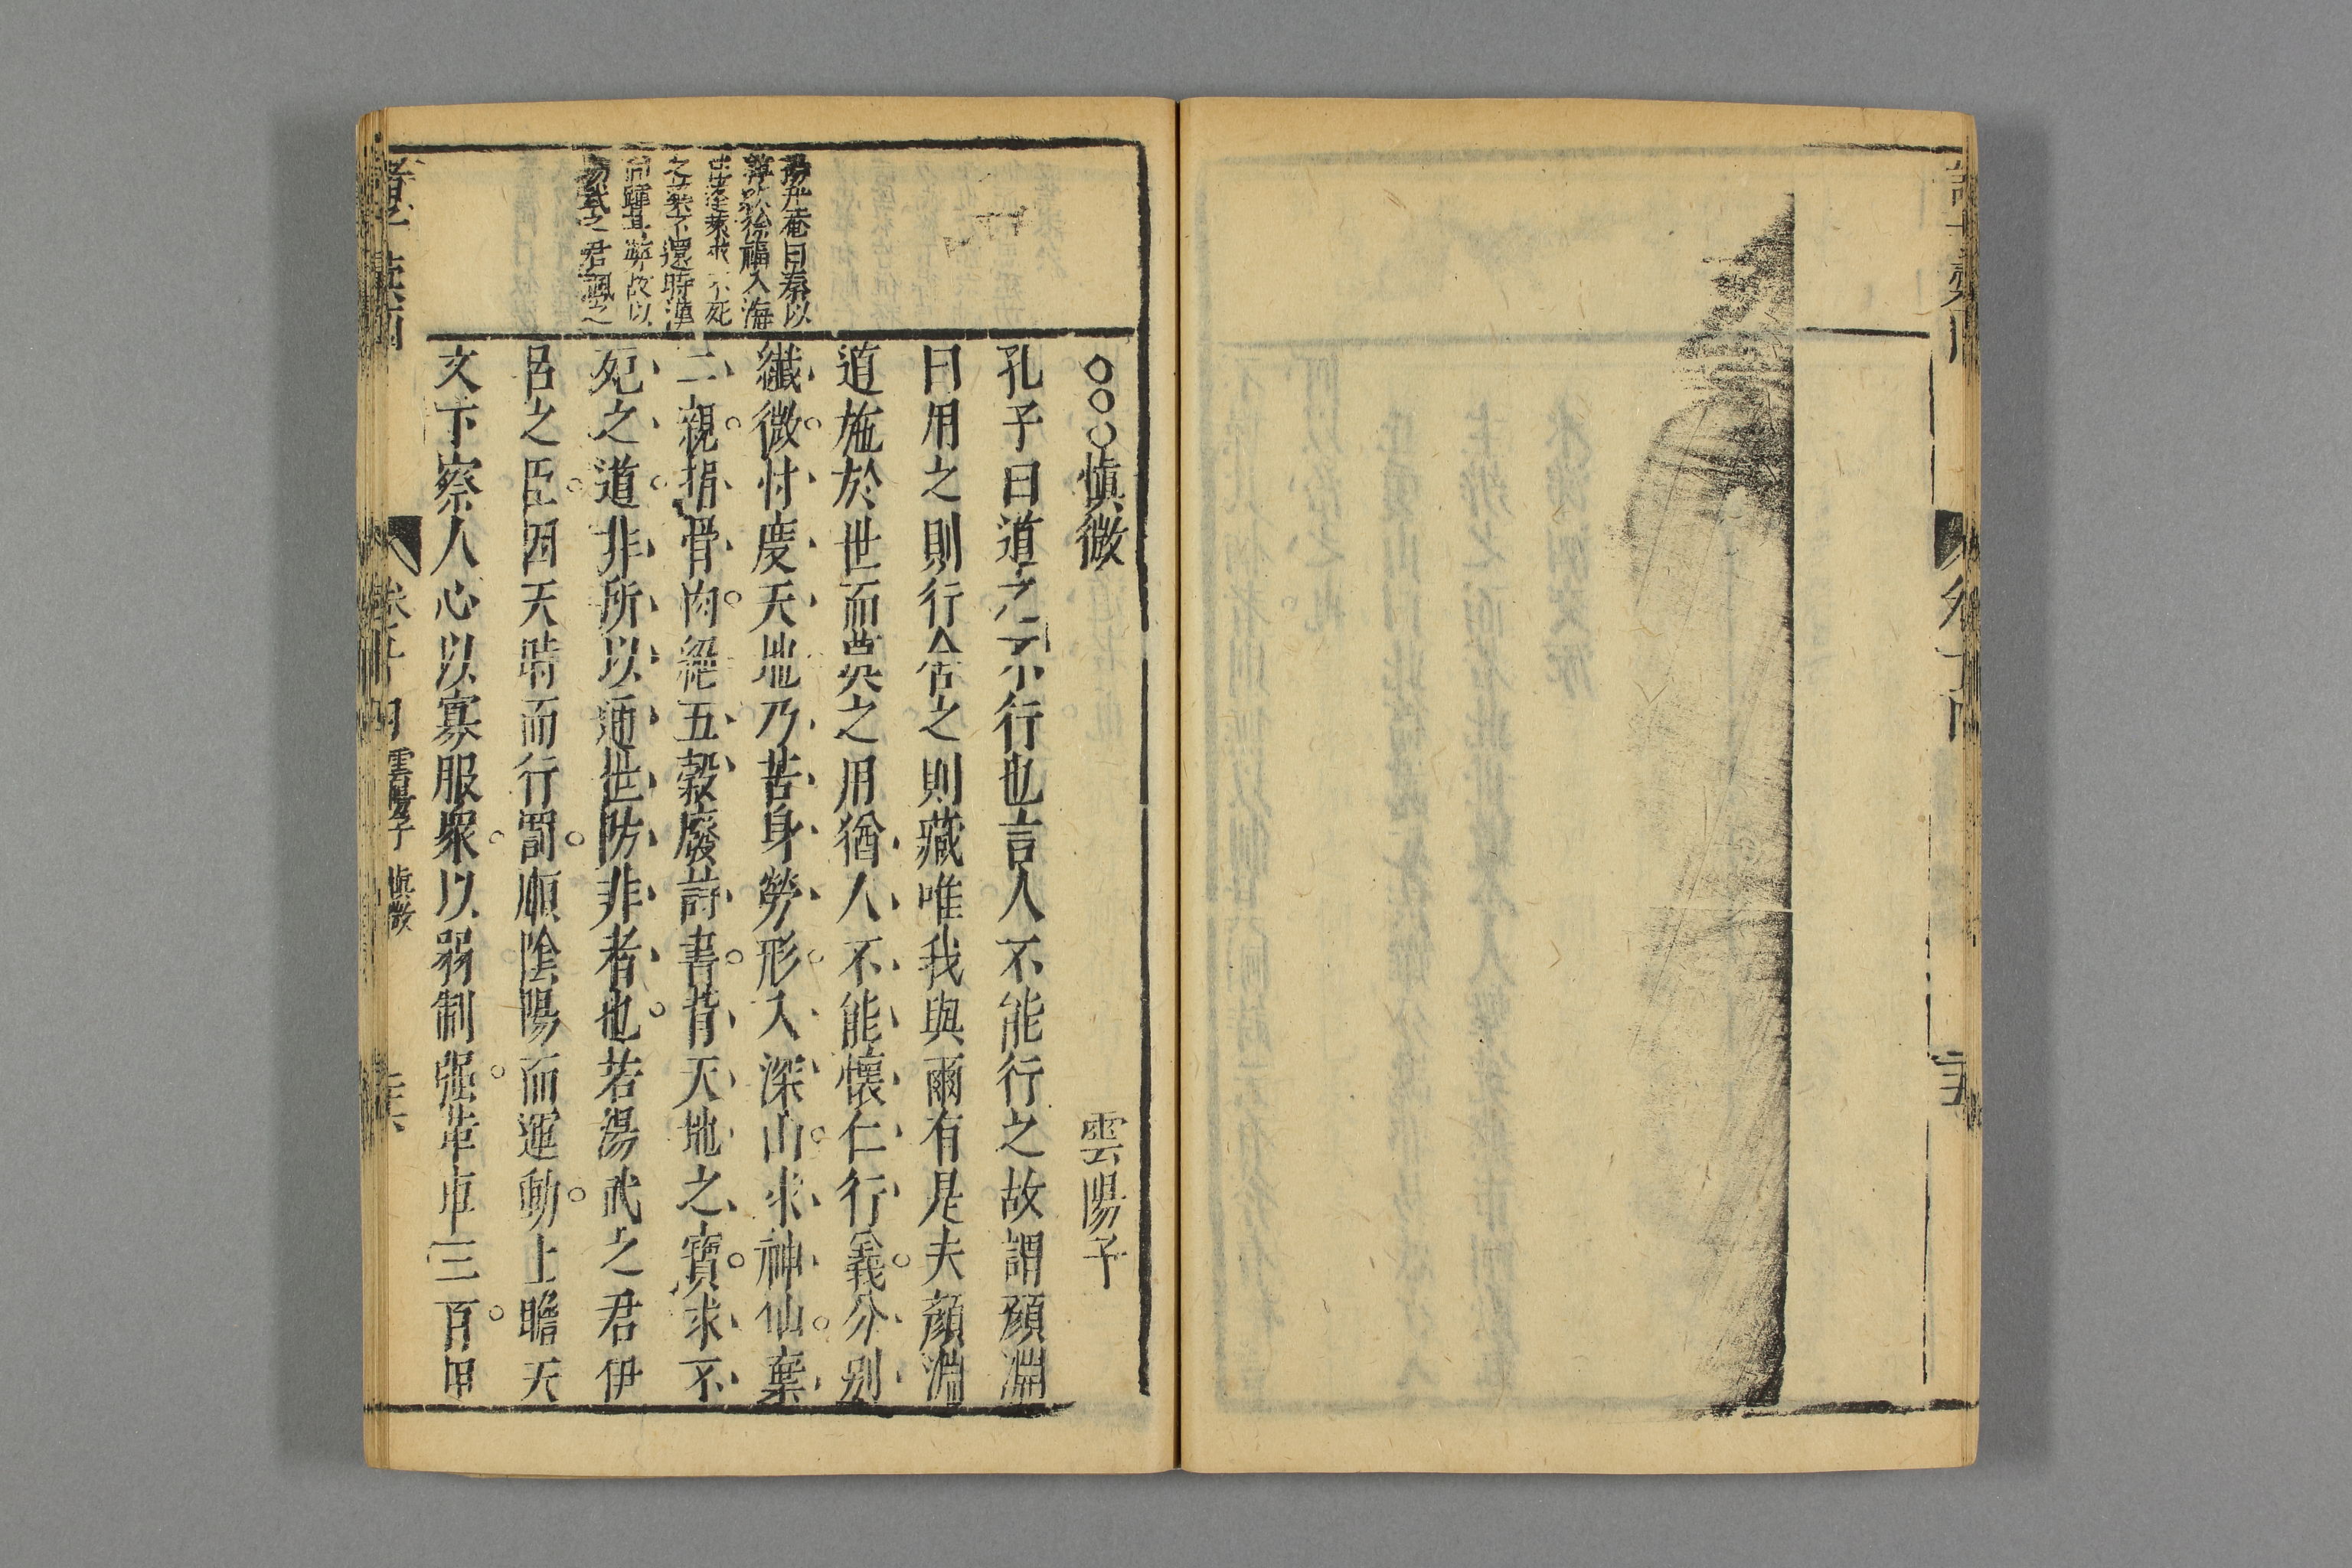 ○○○慎微 雲陽子
孔子曰道之不行也言人不能行之故謂顏淵
曰用之則行舍之則藏唯我與爾有是夫顏淵
道施於世而莫之用猶人不能懷仁行義分别
纖微忖度天地乃苦身勞形入深山求神仙棄
二親捐骨肉絕五穀廢詩書背天地之寶求不
死之道非所以通世防非者也若湯武之君伊
呂之臣因天時而行罰順陰陽而運動上瞻天
文下察人心以寡服衆以弱制强革車三百甲
楊升庵曰秦以
徐福入海
蓬萊求不死
之藥不還時漢
以
湯武之君諷之
雲陽子 慎微